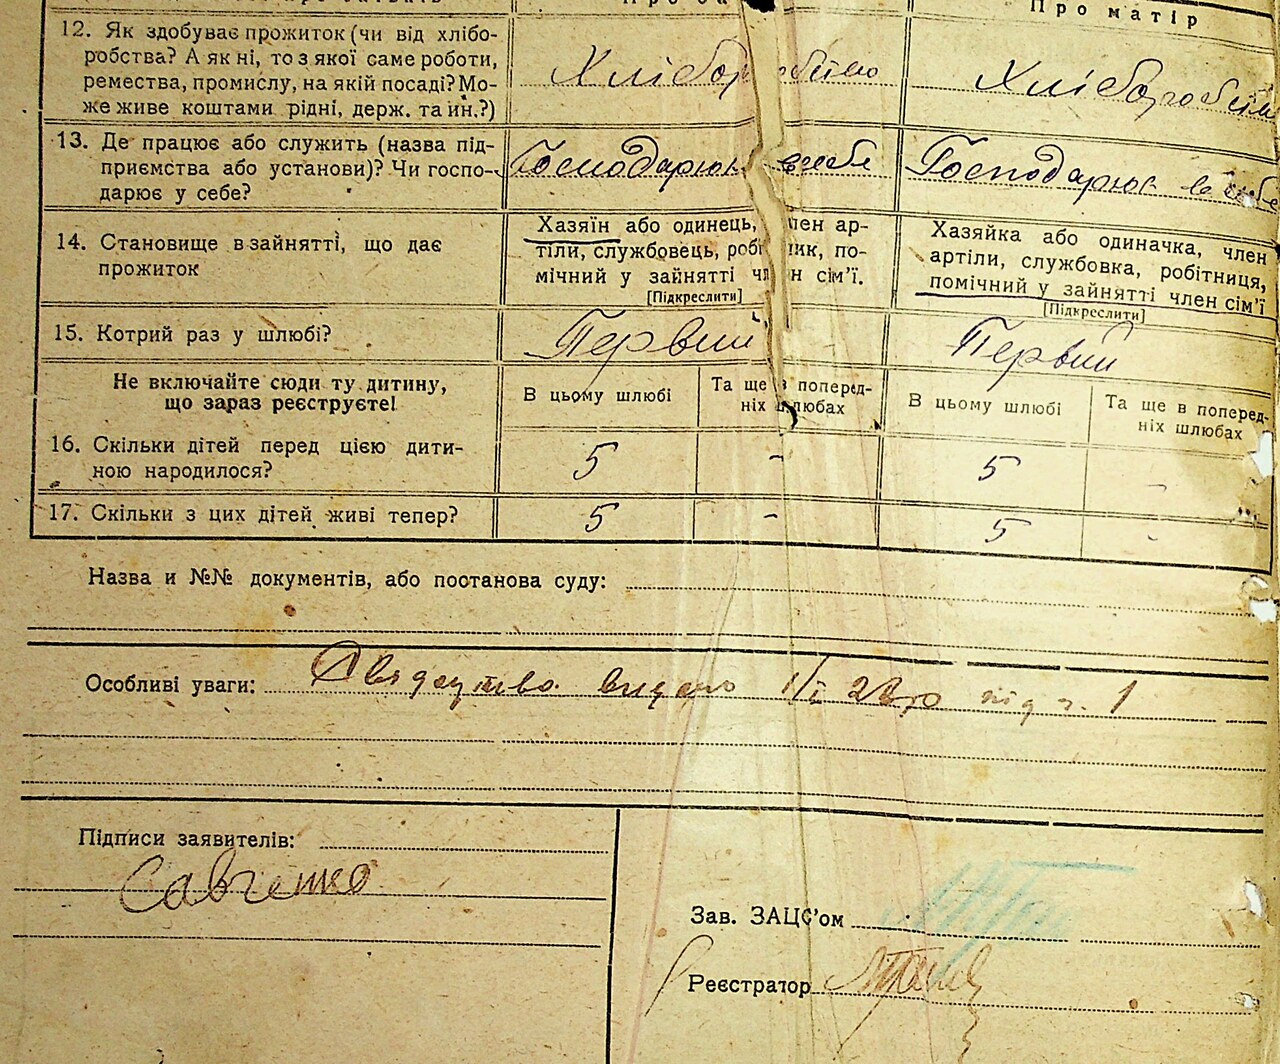 Про матір
12. Як здобуває прожиток (чи від хлібо-
робства? А як ні, то з якої саме роботи,
ремества, промислу, на якій посаді? Мо-
же живе коштами рідні, держ. та ин.?)
Хліборобство
Хлібороб
13. Де працює або служить (назва під-
приємства або установи)? Чи госпо-
дарює у себе?
Господарює в себе
Господарює в себе
14. Становище в зайнятті, що дає
прожиток
Хазяїн або одинець, член ар-
тіли, службовець, робітник, по-
мічний у зайнятті член сім'ї.
[Підкреслити]
Хазяйка або одиначка, член
артіли, службовка, робітниця,
помічний у зайнятті член сім'ї
[Підкреслити]
15. Котрий раз у шлюбі?
Первий
Первий
Не включайте сюди ту дитину,
що зараз реєструєте!
В цьому шлюбі
Та ще в поперед-
ніх шлюбах
В цьому шлюбі
Та ще в поперед-
ніх шлюбах
16. Скільки дітей перед цією дити-
ною народилося?
5 - 5 -
17. Скільки з цих дітей живі тепер?
5 - 5 -
Назва и №№ документів, або постанова суду:
Особливі уваги: видано 1/I під ч. 1
Підписи заявителів:
Савченко
Зав. ЗАЦС'ом
Реєстратор